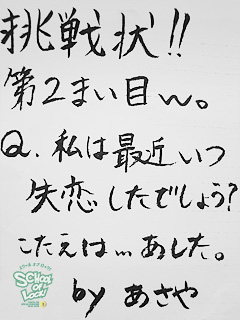 挑戦状!!
第2まい目w。
Q.私は最近いつ
失恋したでしょう?
こたえは…あした。
by あさや
SCHOOL OF LOCK!